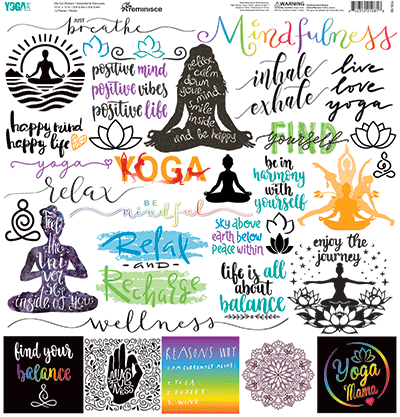 YOGA
reminisce
WARNING
JUST
breathe
Mindfulness
positive mind
positive vibes
positive life
relax
calm
down
your
mind
smile
inside
and be happy
inhale
exhale
live
love
yoga
happy mind
happy life
FIND
yourself
yoga
YOGA
be in
harmony
with
yourself
relax
BE
mindful
Feel
the
universe
inside of you
Relax
and
Recharge
sky above
earth below
peace within
enjoy the
journey
life is all
about
balance
wellness
find your
balance
REASONS WHY
I AM CURRENTLY ALIVE!
1. YOGA
2. COFFEE
3. WINE
Yoga
Mama